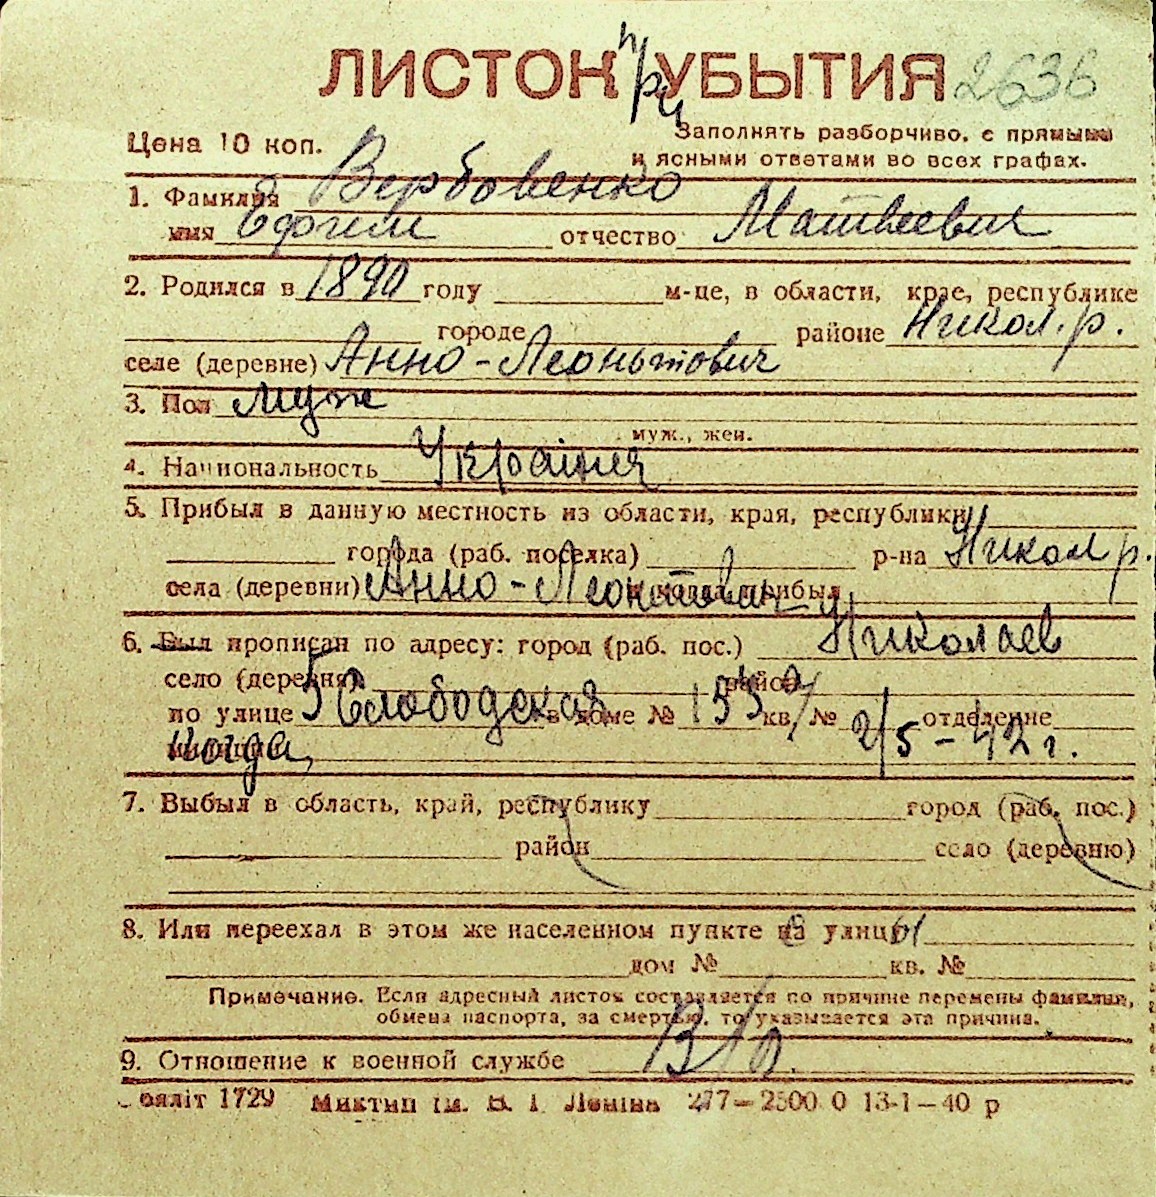 ЛИСТОК УБЫТИЯ 2636
при
Цена 10 коп. Заполнять разборчиво, с прямыми
и ясными ответами во всех графах.
1. Фамилия Вербовенко
имя Ефрем отчество Матвеевич
2. Родился в 1890 году м-це, в области, крае, республике
городе районе Никол. р.
селе (деревне) Анно-Леонтович
3. Пол муж
муж., жен.
4. Национальность
5. Прибыл в данную местность из области, края, республики
города (раб. поселка) р-на Никол р.
села (деревни) Анно-Леонтович и когда прибыл
6. Был прописан по адресу: город (раб. пос.) Николаев
село (деревня) район
по улице 5 Слободская в доме № 155 кв. № отделение
милиции когда, 2/5-42 г.
7. Выбыл в область, край, республику город (раб. пос.)
район село (деревню)
8. Или переехал в этом же населенном пункте на улицу
дом № кв. №
Примечание. Если адресный листок составляется по причине перемены фамилии,
обмена паспорта, за смертью, то указывается эта причина.
9. Отношение к военной службе В/о
1729 ім. В. І. Леніна 277—2500.0 13-1—40 р